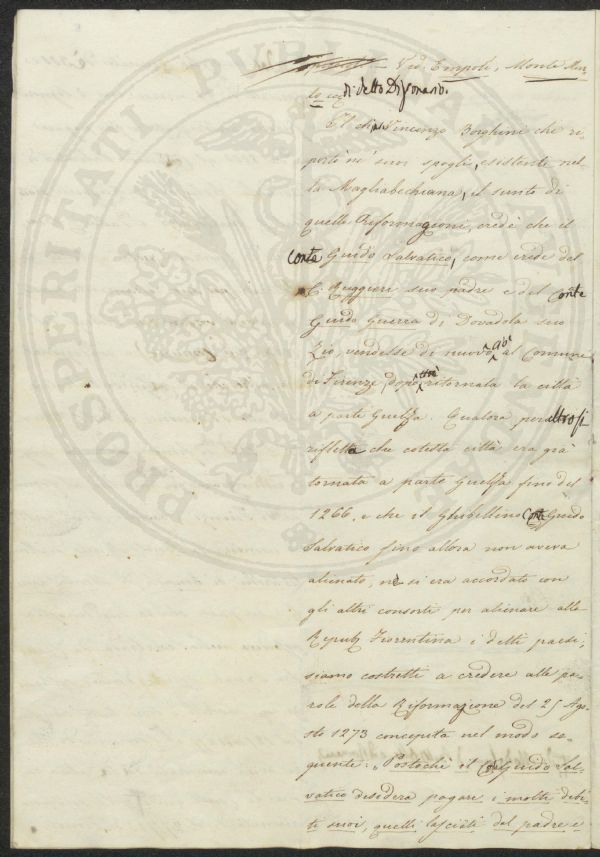 Ved. Empoli, Monte Mur,
lo ec. di detto Dizonario.
Il ch. Vincenzo Borghini che ri,
portò ne' suoi spogli, esistente nel,
la Magliabechiana, il sunto di
quelle Riformagioni, crede che il
Conte Guido Salvatico, come erede del
C. Ruggieri suo padre e del Conte
Guido Guerra di Dovadola suo
Zio, vendesse di nuovo al Comune
di Firenze, dopo ritornata la città
a parte Guelfa. Qualora peraltro si
rifletta che cotesta città era già
tornata a parte Guelfa fino del
1266. e che il Ghibellino Conte Guido
Salvatico fino allora non aveva
alienato, nè si era accordato con
gli altri consorti per alienare alla
Repub. Fiorentina i detti paesi,
siamo costretti a credere alle pa,
role della Riformagione del 25 Ago,
sto 1273 concepita nel modo se,
guente: "Postochè il Conte Guido Sal,
vatico desidera pagare i molti debi,
ti suoi, quelli lasciati del padre e
PROSPERITATI PUBLICAE